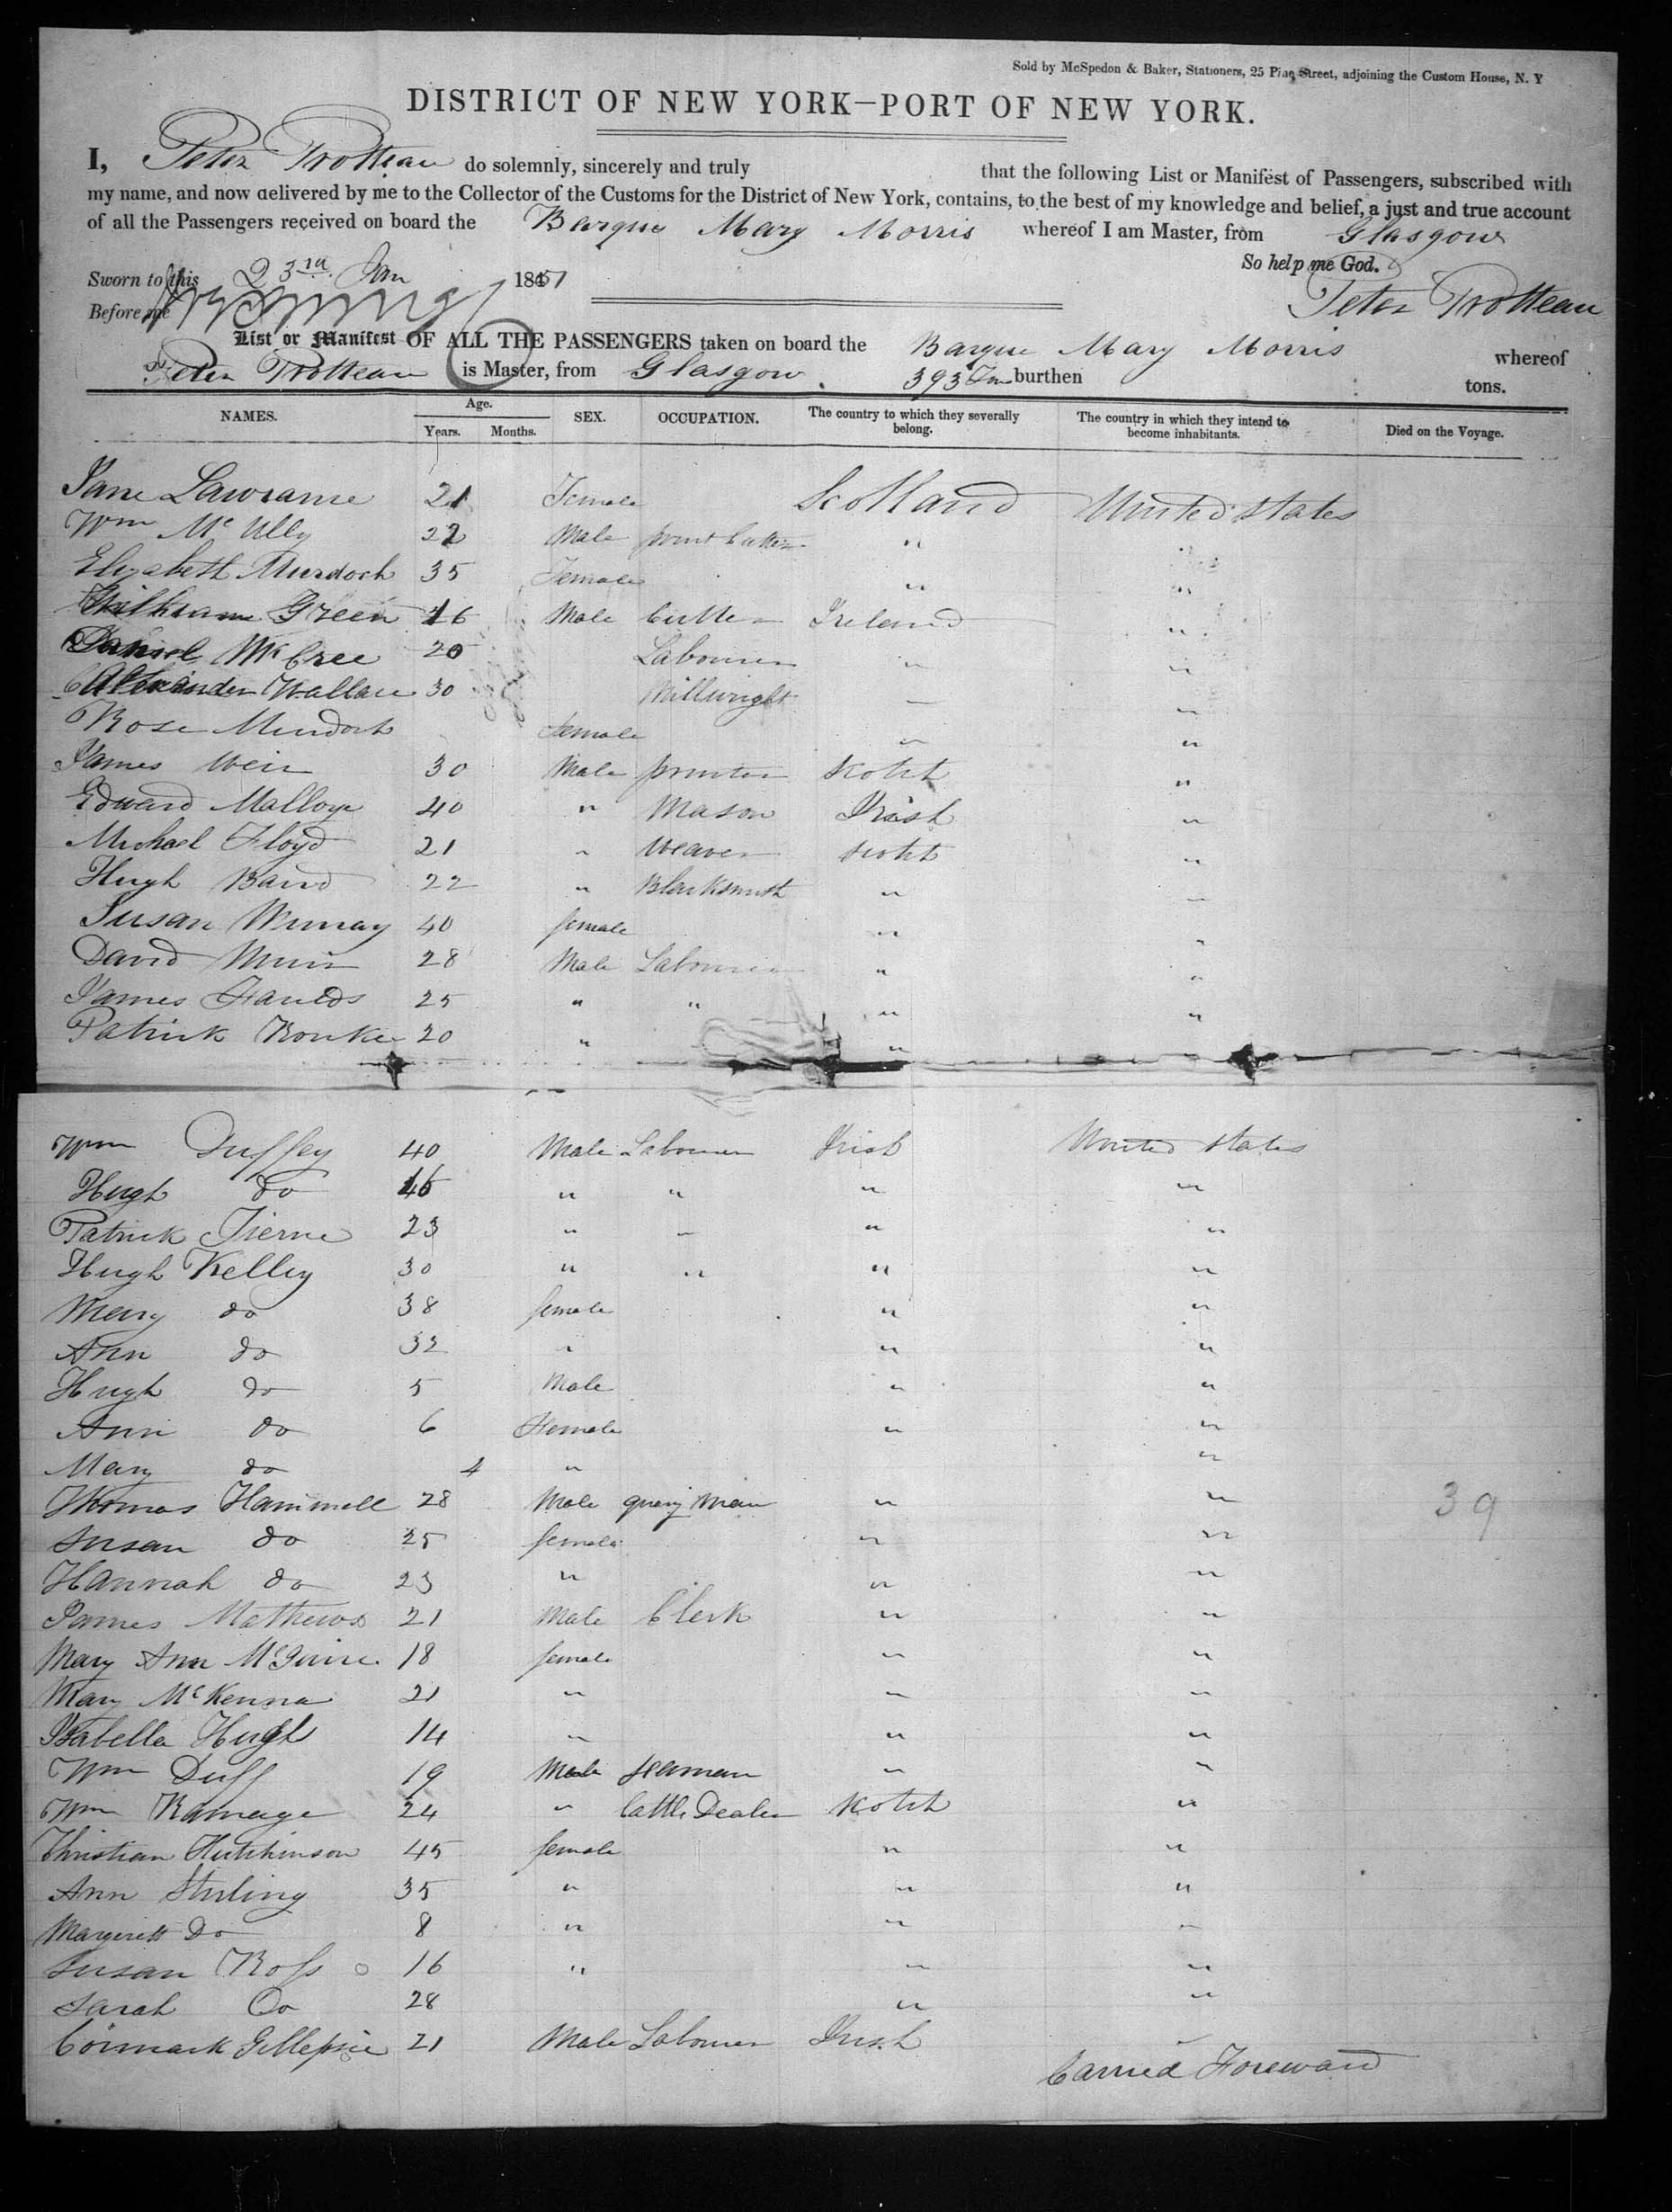 Sold by McSpedon & Baker, Stationers, 25 Pine Street, adjoining the Custom House, N. Y
DISTRICT OF NEW YORK—PORT OF NEW YORK.
I, Peter Trotteau do solemnly, sincerely and truly that the following List or Manifest of Passengers, subscribed with
my name, and now delivered by me to the Collector of the Customs for the District of New York, contains, to the best of my knowledge and belief, a just and true account
of all the Passengers received on board the Barque Mary Morris whereof I am Master, from Glasgow
So help me God.
Sworn to this 23rd Jan 1851
Before me
Peter Trotteau
List or Manifest OF ALL THE PASSENGERS taken on board the Barque Mary Morris whereof
Peter Trotteau is Master, from Glasgow. 393 Ton burthen tons.
NAMES. Age. Years. Months. SEX. OCCUPATION. The country to which they severally belong. The country in which they intend to become inhabitants. Died on the Voyage.
Jane Lawranse 21 Female Scotland United States
Wm Mc Ully 22 Male print Cutter " "
Elizabeth Murdoch 35 Female " "
William Green 16 Male Cutter Ireland "
Daniel McCree 20 Labourer " "
Alexander Wallace 30 Millwright " "
Rose Murdoch female " "
James Weir 30 Male printer Scotch "
Edward Malloye 40 " Mason Irish "
Michael Floyd 21 " Weaver Scotch "
Hugh Baird 22 " Blacksmith " "
Susan Murray 40 female " "
David Muir 28 Male Labourer " "
James Faulds 25 " " " "
Patrick Rourke 20 " "
Wm Duffey 40 Male Labourer Irish United States
Hugh do 16 " " " "
Patrick Tierne 23 " " " "
Hugh Kelley 30 " " " "
Mary do 38 female " "
Ann do 32 " " "
Hugh do 5 Male " "
Ann do 6 Female " "
Mary do 4 " "
Thomas Hammell 28 Male quary Man " " 39
Susan do 25 female " "
Hannah do 23 " " "
James Mathews 21 Male Clerk " "
Mary Ann McGuire 18 female " "
Mary McKenna 21 " " "
Isabella Hugh 14 " " "
Wm Duff 19 Male Seaman " "
Wm Ramage 24 " Cattle Dealer Scotch "
Christian Hutchinson 45 female " "
Ann Sterling 35 " " "
Margerett Do 8 " " "
Susan Ross 16 " " "
Sarah Do 28 " "
Cormack Gillespie 21 Male Labourer Irish "
Carried Foreward